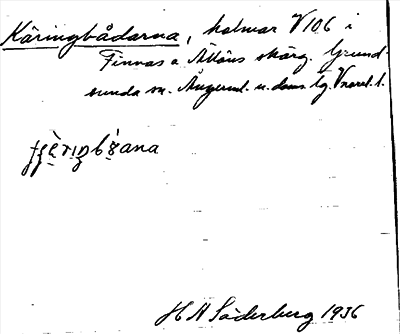 Käringbådarna, holmar V 106 i
Finnas o. Ältöns skärg. Grund
sunda sn. Ångerml. n. doms tg. Vnorrl. l.
H A Söderberg 1936